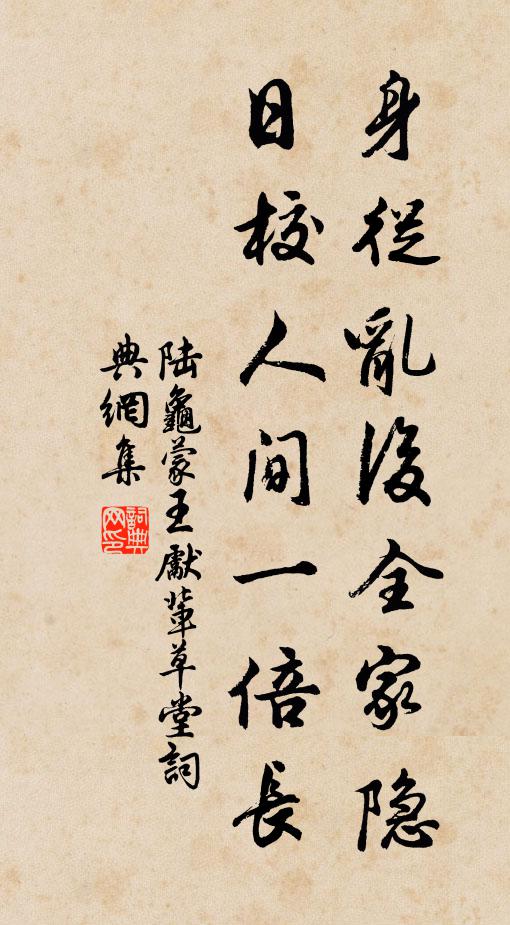 身從亂後全家隐
日校人間一倍長
陆龜蒙王獻輩草堂詞
典網集
詞典
网印